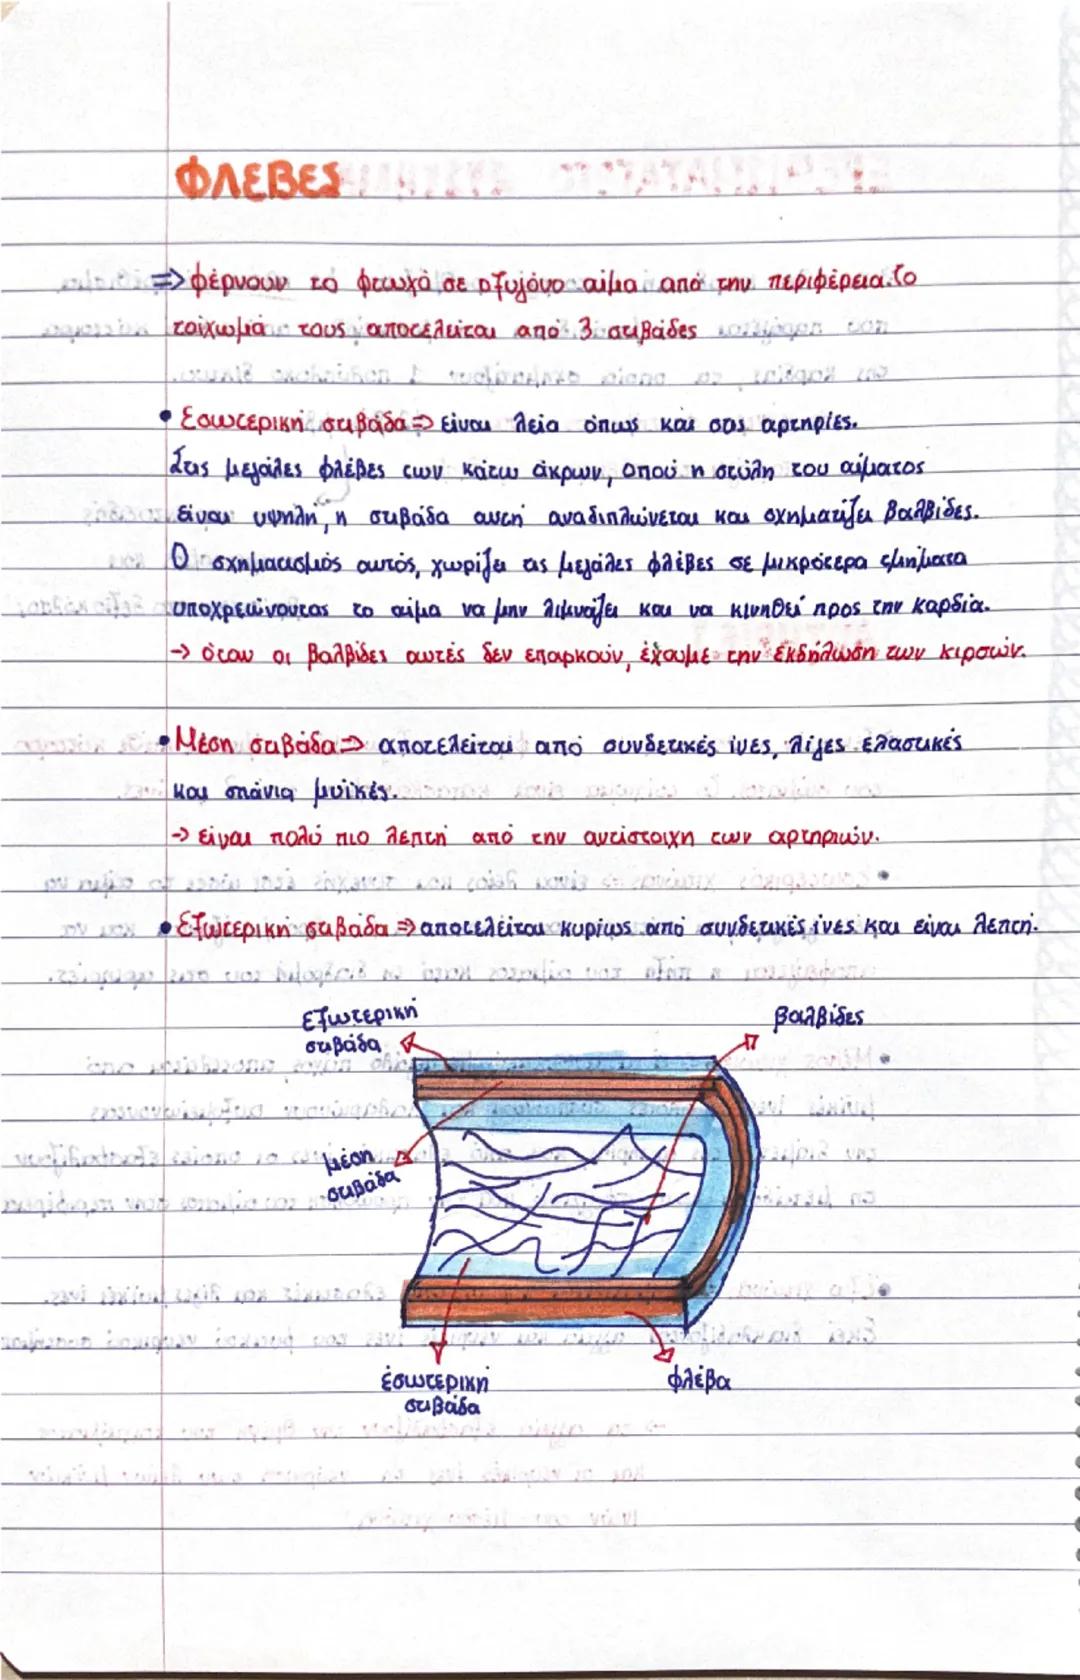 ΦΛΕΒΕΣ
⇒ φέρνουν το φτωχό σε οξυγόνο αίμα από την περιφέρεια. Το
τοίχωμά τους αποτελείται από 3 στιβάδες
• Εσωτερική στιβάδα ⇒ είναι λεία όπως και στις αρτηρίες.
Στις μεγάλες φλέβες των κάτω άκρων, όπου η στύλη του αίματος
είναι υψηλή, η στιβάδα αυτή αναδιπλώνεται και σχηματίζει βαλβίδες.
Ο σχηματισμός αυτός, χωρίζει τις μεγάλες φλέβες σε μικρότερα τμήματα
υποχρεώνοντας το αίμα να μην λιμνάζει και να κινηθεί προς την καρδία.
→ όταν οι βαλβίδες αυτές δεν επαρκούν, έχουμε την εκδήλωση των κιρσών.
• Μέση στιβάδα ⇒ αποτελείται από συνδετικές ίνες, λίγες ελαστικές
και σπάνια μυϊκές.
→ είναι πολύ πιο λεπτή από την αντίστοιχη των αρτηριών.
• Εξωτερική στιβάδα ⇒ αποτελείται κυρίως από συνδετικές ίνες και είναι λεπτή.
εξωτερική
στιβάδα
βαλβίδες
μέση
στιβάδα
έσωτερική
στιβάδα
φλέβα